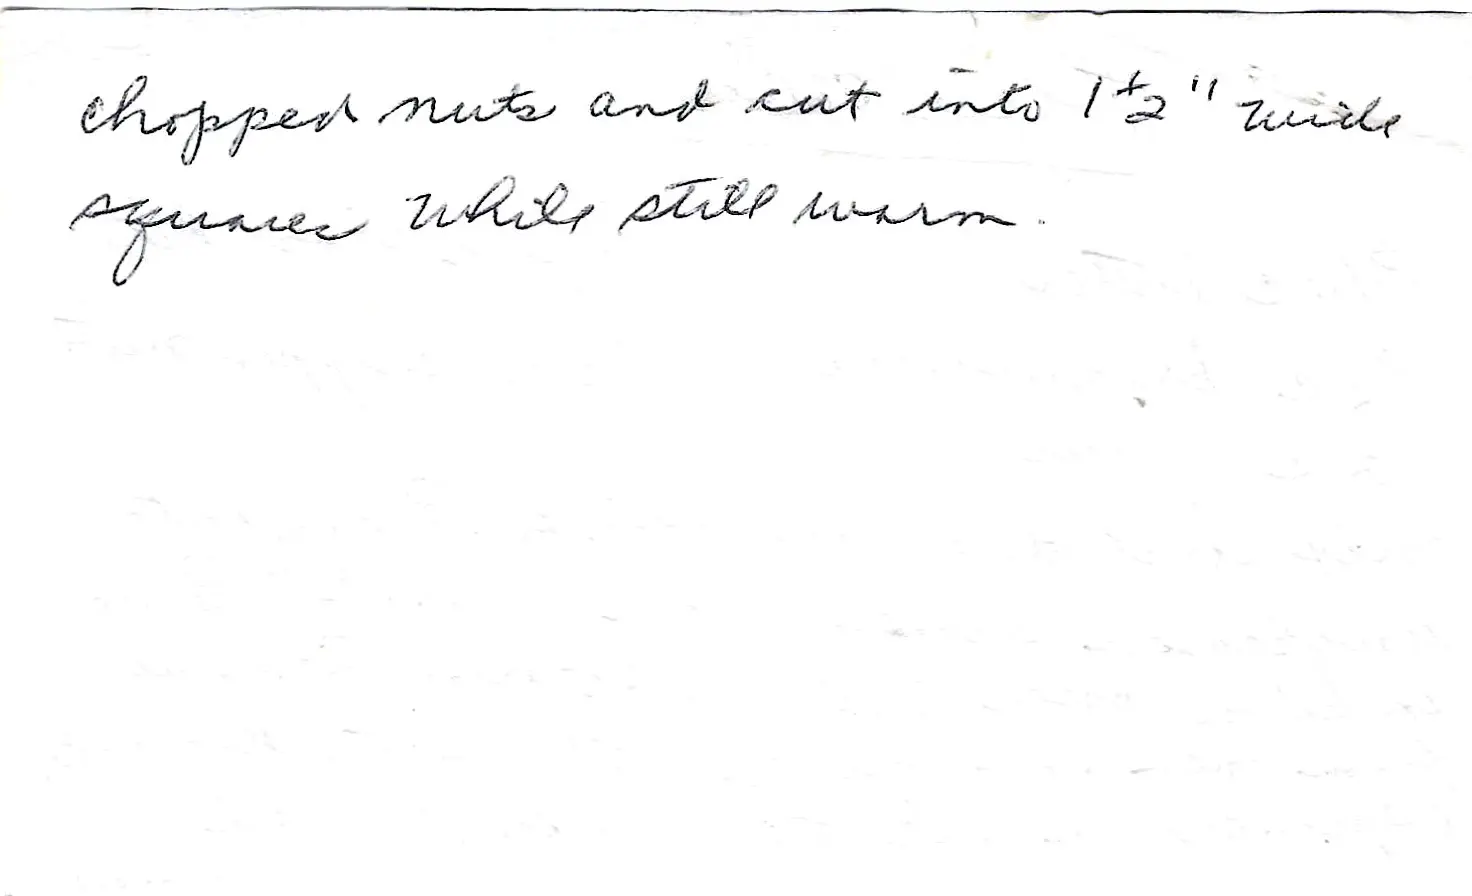 chopped nuts and cut into 1 1/2" wide
squares while still warm.